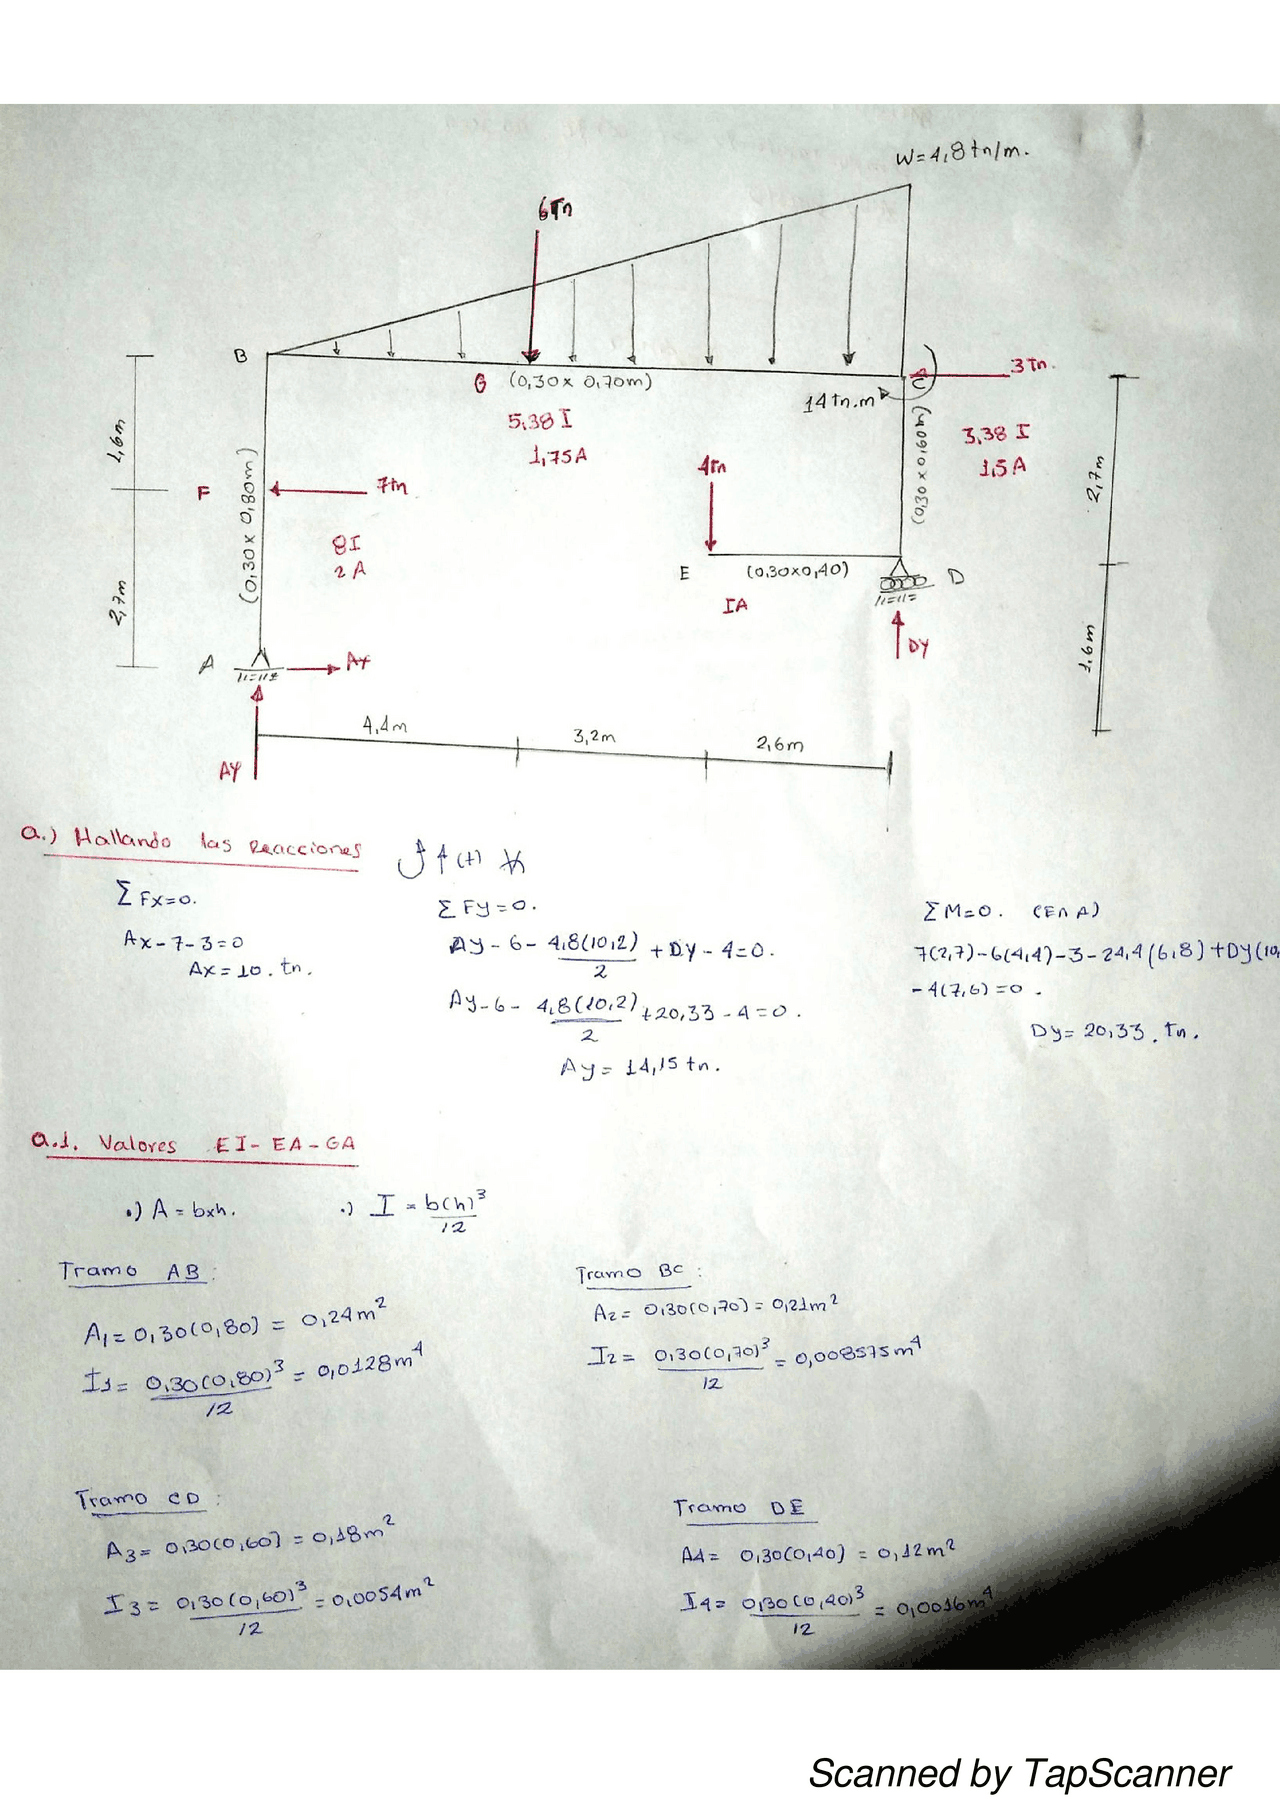 W=4,8 tn/m.
6Tn
B
G (0,30 x 0,70m)
C
3 Tn.
14 tn.m
5,38 I
1,75 A
3,38 I
1,5 A
(0,30 x 0,60m)
1,6m
F
7tn
(0,30 x 0,80m)
8I
2 A
4tn
2,7m
E
(0,30x0,40)
D
IA
2,7m
A
Ax
DY
1,6m
4,4m
3,2m
2,6m
AY
a.) Hallando las Reacciones
(+)
Σ Fx=0.
Σ Fy=0.
Σ M=0. (En A)
Ax-7-3=0
Ay - 6 - 4,8(10,2)/2 + Dy - 4=0.
7(2,7)-6(4,4)-3-24,4(6,8)+Dy(10,
Ax=10. tn.
-4(7,6)=0.
Ay-6- 4,8(10,2)/2 +20,33-4=0.
Dy= 20,33. tn.
Ay= 14,15 tn.
a.1. Valores EI-EA-GA
•) A = bxh.
.) I = b(h)³/12
Tramo AB:
Tramo BC:
A1= 0,30(0,80) = 0,24m²
A2= 0,30(0,70)=0,21m²
I1= 0,30(0,80)³/12 = 0,0128m⁴
I2= 0,30(0,70)³/12 = 0,008575m⁴
Tramo CD:
Tramo DE
A3= 0,30(0,60) = 0,18m²
A4= 0,30(0,40) = 0,12m²
I3= 0,30(0,60)³/12 = 0,0054m²
I4= 0,30(0,40)³/12 = 0,0016m⁴
Scanned by TapScanner